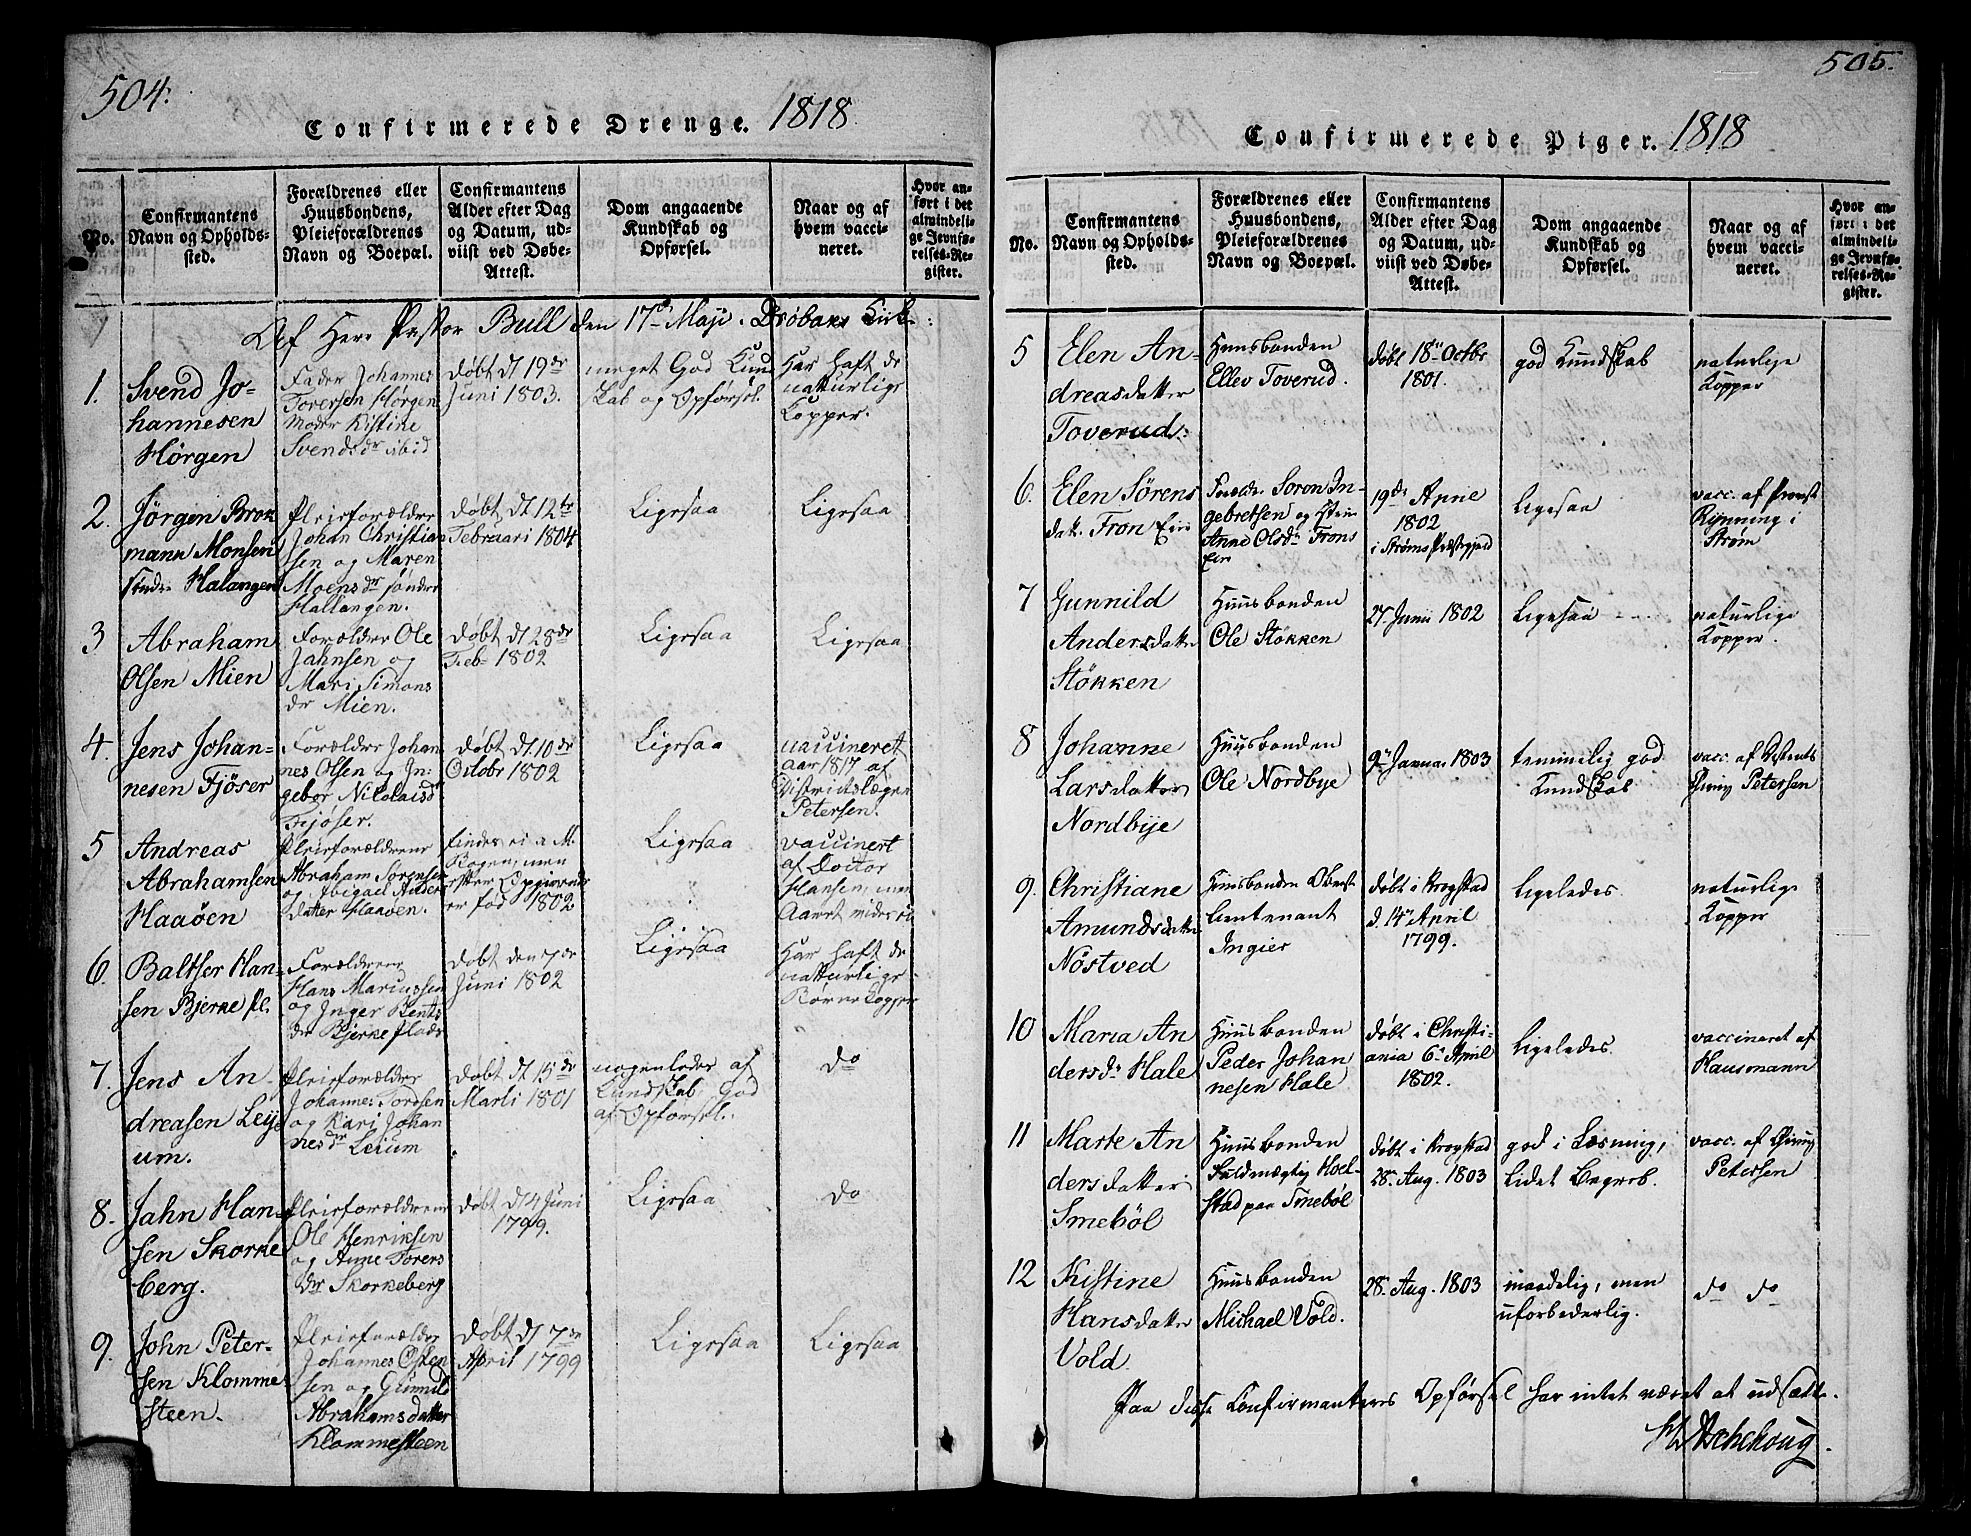 504.
Confirmerede Drenge. 1818.
No.
Confirmantens
Navn og Opholds-
sted.
Forældrenes eller
Huusbondens,
Pleieforældrenes
Navn og Boepæl.
Confirmantens
Alder efter Dag
og Datum, ud-
viist ved Døbe-
Attest.
Dom angaaende
Kundskab og
Opførsel.
Naar og af
hvem vacci-
neret.
Hvor an-
ført i det
almindeli-
ge Jevnfø-
relses-Re-
gister.
Af Herr Pastor Bull den 17de Maji. Drøbaks Kirke
1.
Svend Jo-
hannesen
Hørgen
Fader Johannes
Torersen Hørgen
Moder Kistine
Svendsdr ibid
døbt dt 19de
Juni 1803.
meget God Kund
skab og Opførsel.
Har haft de
naturlige
Kopper.
2.
Jørgen Brok
mann Monsen
søndre Halangen
Pleieforældre
Johan Christian
sen og Maren
Moensdr søndre
Hallangen.
døbt dt 12te
Februari 1804
Ligesaa
Ligesaa
3
Abraham
Olsen Mien
Forældre Ole
Jahnsen og
Mari Simons
dr Mien.
døbt dt 28de
Feb. 1802
Ligesaa
Ligesaa
4.
Jens Johan-
nesen Fjöser
Forældre Johan
nes Olsen og In-
gebor Nicolaisd
Fjøser.
døbt dt 10de
Octobr 1802
Ligesaa
vaccineret
aar 1817 af
Districtslægen
Petersen.
5
Andreas
Abrahamsen
Haaöen
Pleieforældrene
Abraham Sørensen
og Abigael Anders
datter Haaöen.
findes ei i M.
Bogen, men
efter Opgivende
er fød 1802
Ligesaa
vaccinert
af Doctor
Hansen, men
Aaret vides ei
6.
Baltser Han-
sen Bjerke pl.
Forældrene
Hans Mariussen
og Inger Bents
dr Bjerke plads
døbt den 7de
Juni 1802
Ligesaa
Har haft de
naturlige
Børnekopper
7.
Jens An-
dreasen Leij
um.
Pleieforældre
Johannes Tordsen
og Kari Johan
nesdr Leium
døbt dt 15de
Marti 1801
nogenledes af
Kundskab, god
af Opførsel.
do
8.
Jahn Han-
sen Skorke
berg.
Pleieforældrene
Ole Henriksen
og Anne Torers
dr Skorkeberg
døbt dt 4 Juni
1799.
Ligesaa
do
9.
John Peter-
sen Klomme
steen.
Pleieforældre
Johannes Osten
sen og Gunnild
Abrahamsdatter
Klommesteen
døbt dt 7de
April 1799
Ligesaa
Ligesaa
505.
Confirmerede Piger. 1818
No.
Confirmantens
Navn og Opholds-
sted.
Forældrenes eller
Huusbondens,
Pleieforældrenes
Navn og Boepæl.
Confirmantens
Alder efter Dag
og Datum, ud-
viist ved Døbe-
Attest.
Dom angaaende
Kundskab og
Opførsel.
Naar og af
hvem vacci-
neret.
Hvor an-
ført i det
almindeli-
ge Jevnfø-
relses-Re-
gister.
5
Elen An-
dreasdatter
Toverud.
Huusbonden
Ellev Toverud.
døbt 18de Octbr
1801.
god Kundskab
naturlige
Kopper
6.
Elen Sörens
datr. Fron Eie
Soren In-
gebretsen og
Anne Olsdr Frons
Eie
19de
1802
i Strøms Præstegjeld
ligesaa
vacc. af Provst
Rynning i
Strøm
7
Gunnild
Andersdatter
Stökken
Huusbonden
Ole Stökken
27 Junii 1802
Ligesaa
naturlige
Kopper.
8
Johanne
Larsdatter
Nordbye
Huusbonden
Ole Nordbye
9de Januar 1803
temmelig god
Kundskab
vacc. af
Petersen
9.
Christiane
Amundsdatter
Nöstved
Huusbonden Oberst
Lieutenant
Ingier
døbt i Krogstad
d. 14de April
1799.
ligeledes.
naturlige
Kopper
10
Maria An
dersdr Hale
Huusbonden
Peder Johan
nesen Hale
døbt i Christi-
ania 6te April
1802.
ligeledes.
vaccineret af
Hausmann
11
Marte An
dersdatter
Smeböl
Huusbonden
Fuldmægtig Hoel-
stad paa Smeböl
døbt i Krogstad
28. Aug. 1803
god i Læsning,
lidet Begreb.
vacc. af Chirurg
Petersen
12
Kistine
Hansdatter
Vold.
Huusbonden
Michael Vold.
28. Aug. 1803
maadelig, men
uforbederlig.
do do
Paa disse Confirmanters Opførsel har intet været at udsætte.
H. Aschehoug.